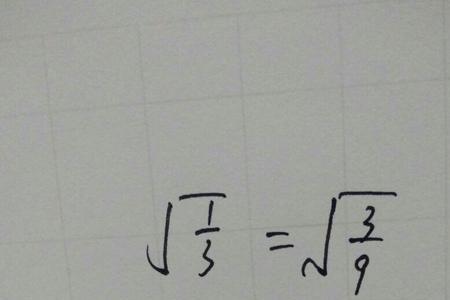 √(1/3) = √(3/9)